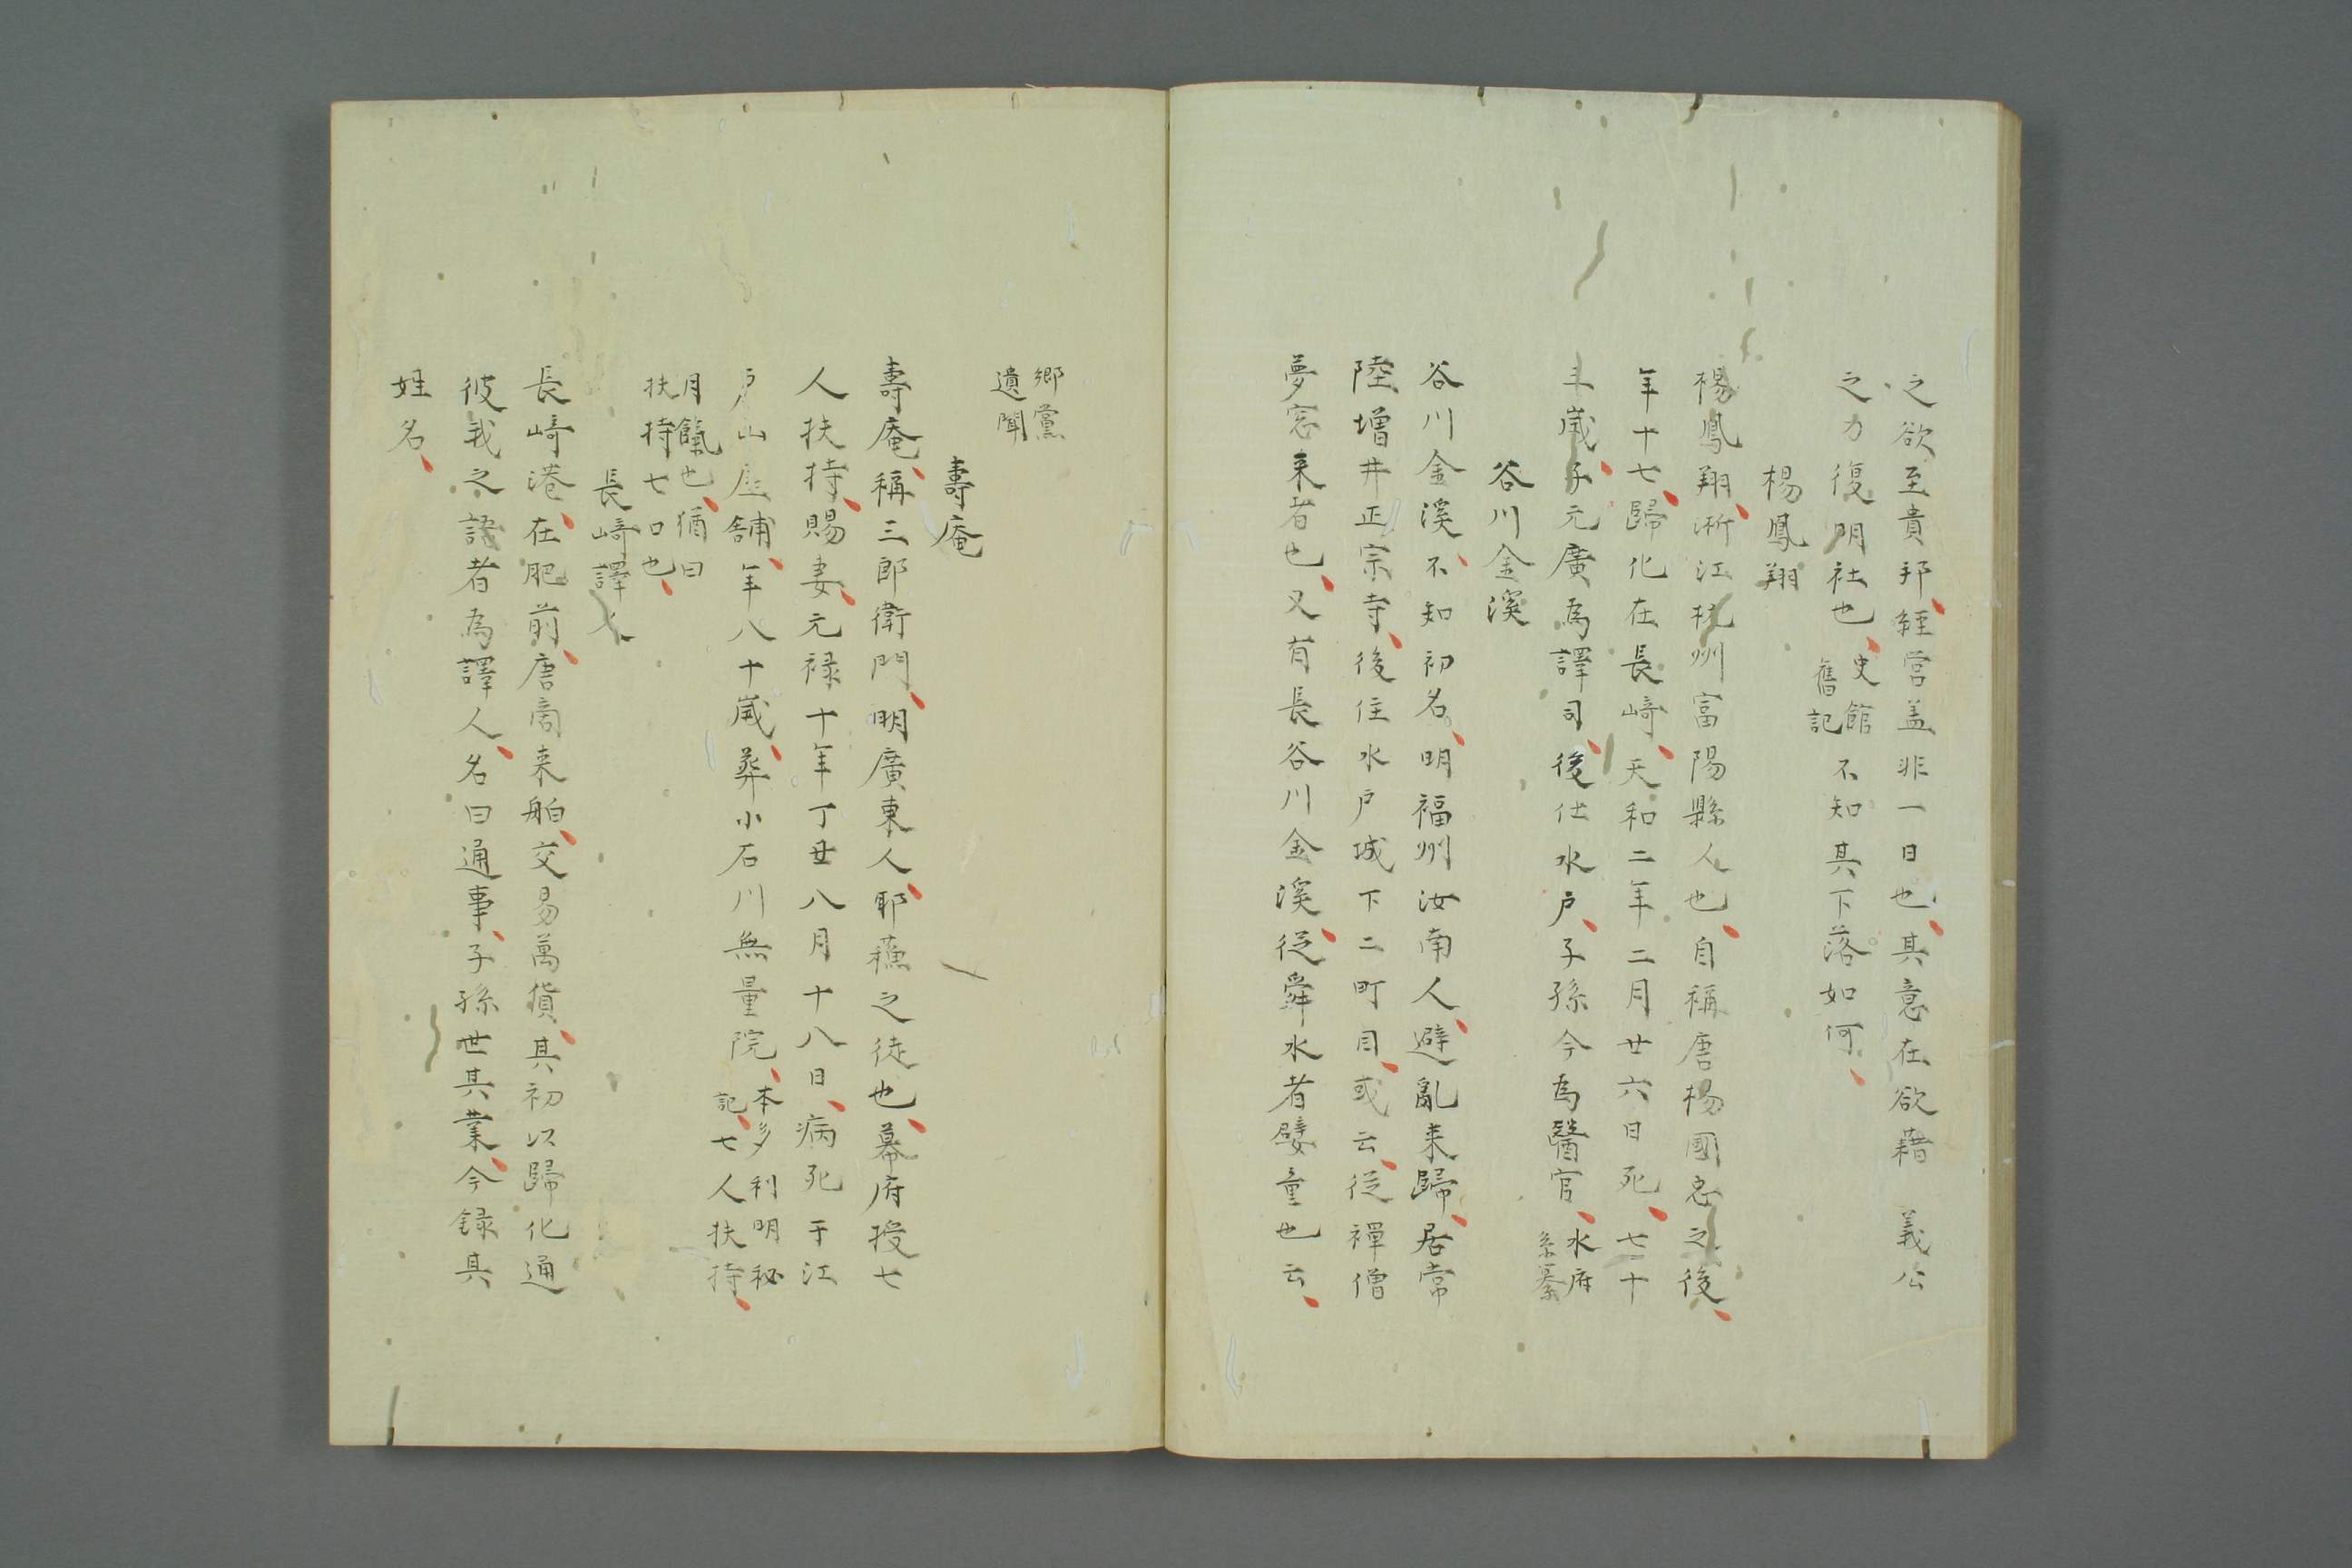 之欲至貴邦、經営盖非一日也、其意在欲藉　義公
之力復明社也、史館舊記不知其下落如何、
楊鳳翔
楊鳳翔、淅江杭州富陽縣人也、自稱唐楊國忠之後、
年十七歸化在長﨑、天和二年二月廿六日死、七十
歳、子元廣為譯司、後仕水戶、子孫今為醫官、水府系纂
谷川金溪
谷川金溪、不知初名、明福州汝南人、避亂来歸、居常
陸増井正宗寺、後住水戶城下二町目、或云、従禪僧
夢窓来者也、又有長谷川金溪、従舜水者嬖童也云、
郷黨
遺聞
壽庵
壽庵、稱三郎衛門、明廣東人、耶蘓之徒也、幕府授七
人扶持、賜妻、元禄十年丁丑八月十八日、病死于江
戶山屋舖、年八十歳、葬小石川無量院、本多利明秘記、七人扶持、
月餼也、猶曰
扶持七口也、
長﨑譯人
長﨑港、在肥前、唐商来舶、交易萬貨、其初以歸化通
彼我之語者為譯人、名曰通事、子孫世其業、今録其
姓名、